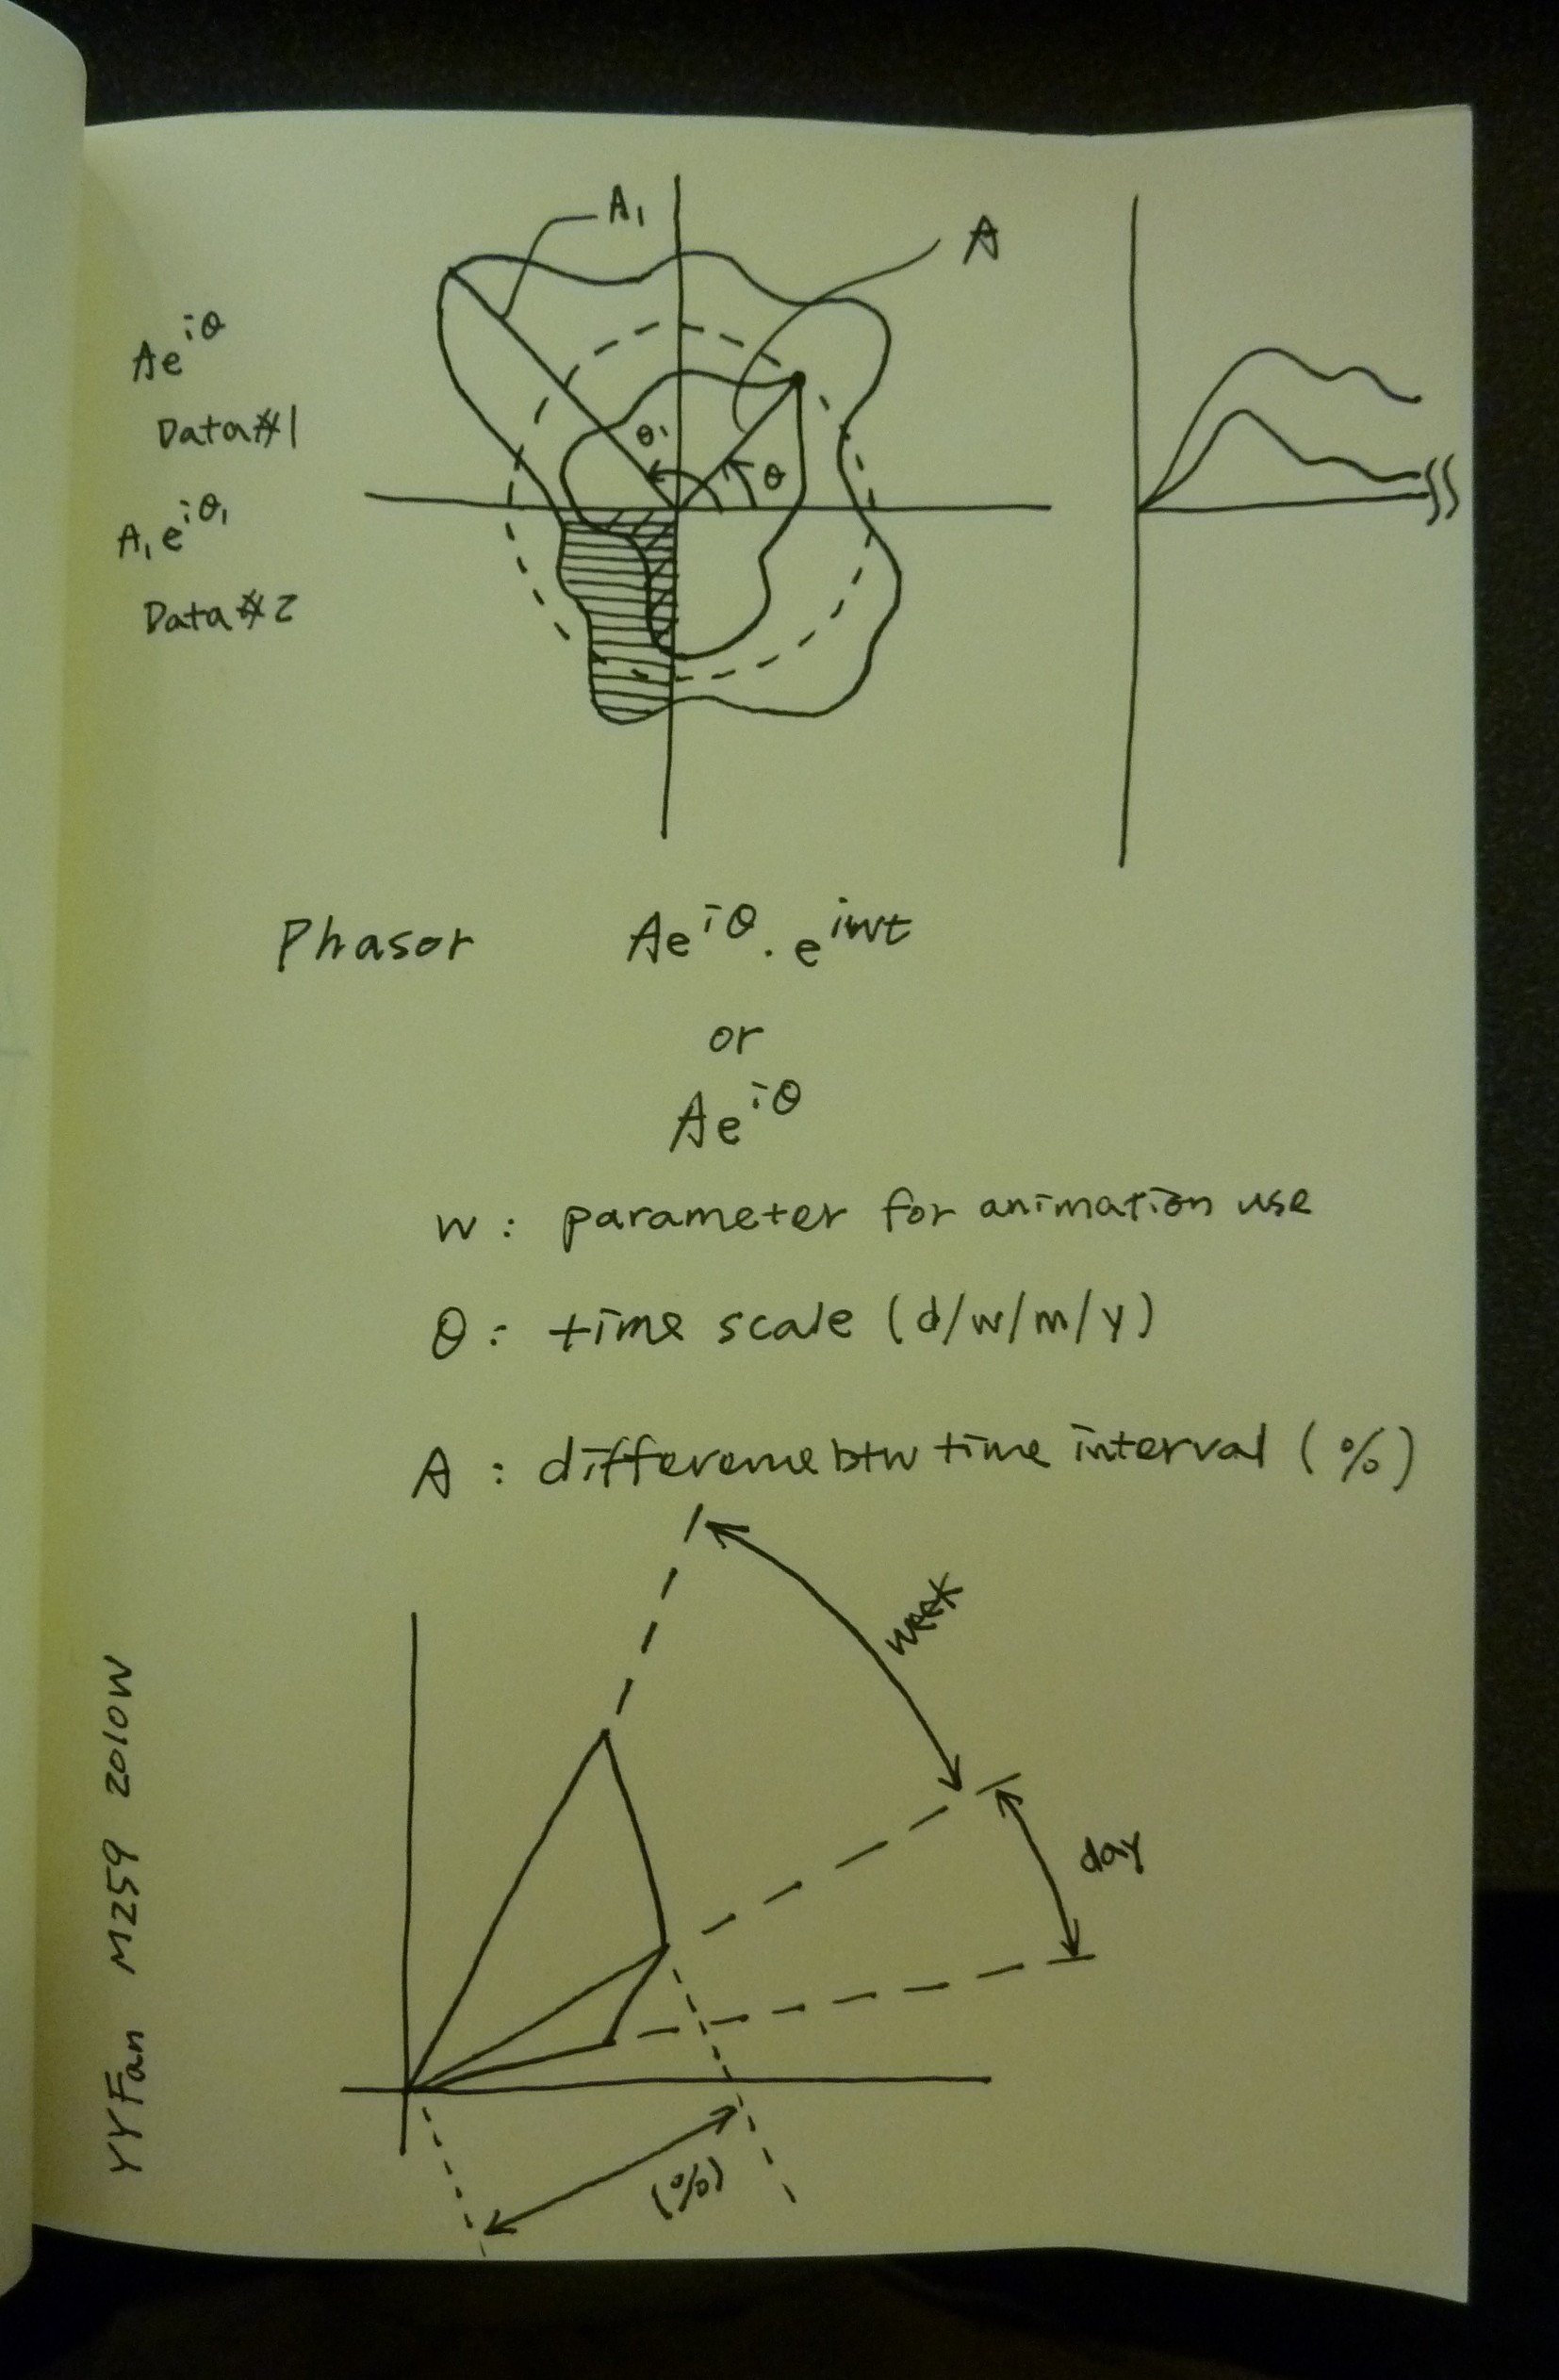 A₁
A
Ae^iθ
Data#1
θ₁
θ
A₁e^iθ₁
Data#2
Phasor Ae^iθ · e^iwt
or
Ae^iθ
w: parameter for animation use
θ: time scale (d/w/m/y)
A: difference btw time interval (%)
week
day
(%)
YYFan M259 2010W